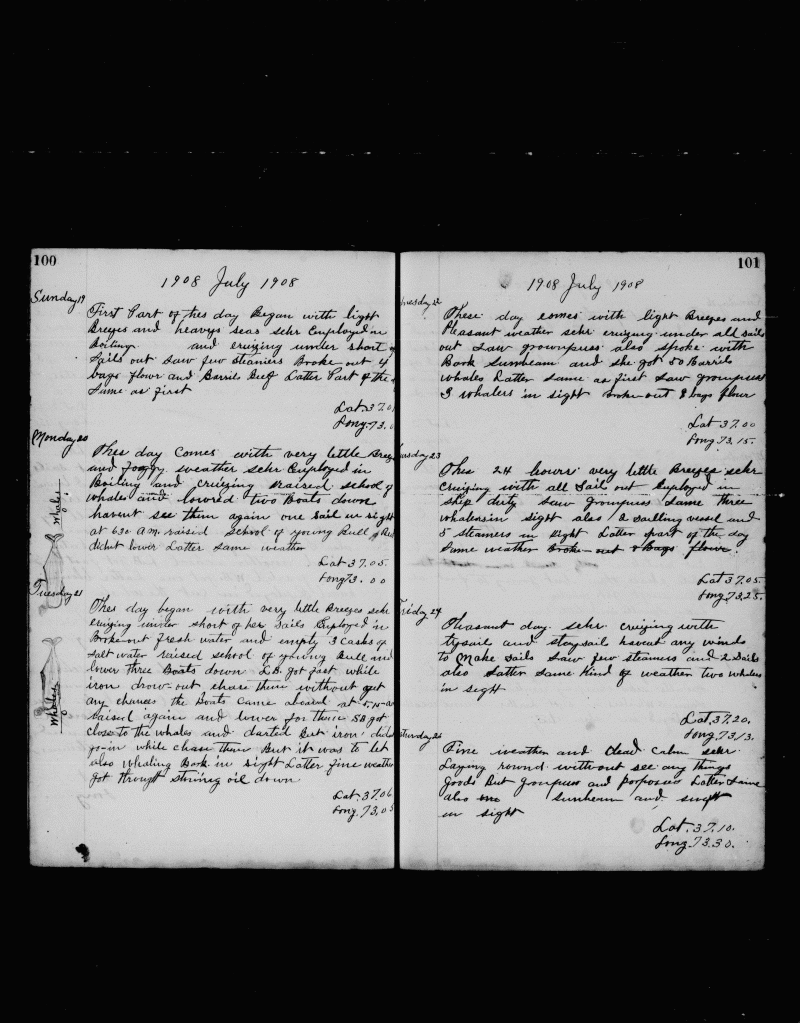 100
1908 July 1908
Sunday 19
First Part of thes day Began with light
Breezes and heavys seas schr Employed in
Boiling and cruizing under short of
Sails out Saw few steamers Broke out 4
bags flour and Barrils Beef Latter Part of the
Same as first
Lat. 37.0
Long. 73.0
Monday 20
Thes day comes with very lettle Breez
and foggy weather schr Employed in
Boiling and Cruizing raised school of
whales and lowered two Boats down
havent see them again one Sail in sight
at 6.30 A.M. raised school of young Bull
didnt lower Latter same weather
Lat 37.05.
Long 73.00
Whales
Tuesday 21
Thes day began with very lettle Breezes schr
cruizing under short of her Sails Employed in
Broke out fresh water and empty 3 Casks of
salt water raised school of young Bull and
lower three Boats down L.B. got fast while
iron drow out chase them without get
any chances the Boats came aboard at
raised again and lower for them SB got
close to the whales and darted But iron did
go in while chase them But it was to let
also whaling Bark in sight Latter fine weather
got through stowing oil down
Lat. 37.06
Long. 73.05
Whales
101
1908 July 1908
nesday 22
These day comes with light Breezes and
Pleasant weather schr cruizing under all sails
out Saw grownpuss also spoke with
Bark Sunbeam and she got 50 Barrils
whales Latter same as first Saw grownpuss
3 whalers in sight broke out 8 bags flour
Lat 37.00
Long. 73.15.
ursday 23
Thes 24 hours very lettle Breezes schr
cruizing with all Sail out Employed in
ship duty saw grownpuss Same three
whalers in sight also 2 sailling vessel and
5 steamers in sight Latter part of the day
Same weather broke out 8 Bags flour.
Lat 37.05.
Long. 73.25.
Friday 24
Pleasant day schr cruizing with
trysail and staysail havent any winds
to Make Sails Saw few steamers and 2 Sails
also Latter Same Kind of weather two whalers
in sight
Lat. 37.20.
Long. 73/3.
aturday 25
Fine weather and dead calm schr
Laying round without see any things
goods But grownpuss and porpouses Latter Same
also one Sunbeam and swift
in sight
Lat. 37.10.
Long. 73.30.